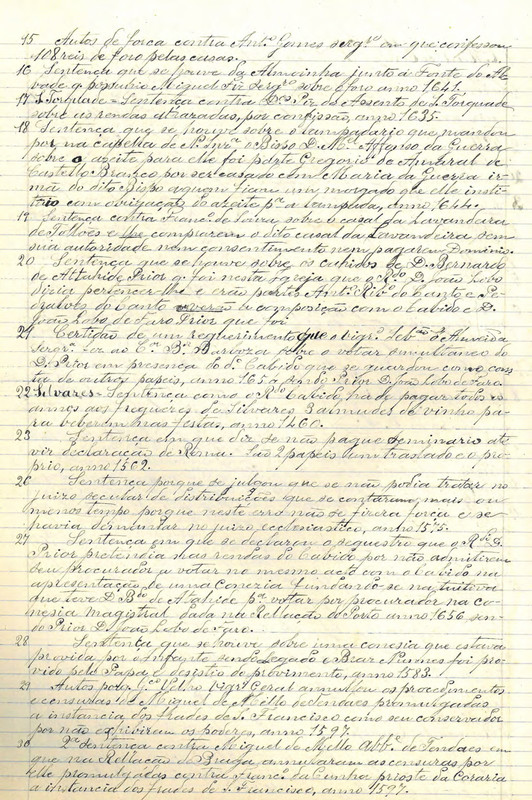 15 Autos de força contra Antº Gomes sergro em que confessou
108 reis de foro pelas casas.
16 Sentença que se houve da Almoinha junto à Fonte do Ab
bade q possuhio Miguel Sergro sobre o foro anno 1641.
17 S. Torquade - Sentença contra Dos Piz do Assento de S. Torquade
sobre as rendas atrazadas, por confissão, anno 1635.
18 Sentença que se houve sobre o lampadario que mandou
por na capella de N. Snra o Bispo D. Mel Affonso da Guerra
sobre o azeite para elle foi parte Gregorio de Amaral de
Castello Branco por ser casado com Maria da Guerra ir
mã do dito Bispo a quem ficou um morgado que elle insti-
tuio com obrigação do azeite pa a lampada, anno 644.
19 Sentença contra Franco de Seixa sobre o casal da Lavandeira
de Pollvos e lhe comprarem o dito casal da Lavandeira sem
sua autoridade nem consentimento nem pagarem Dominio.
20 Sentença que se houve sobre os cahidos de D. Bernardo
de Athaide Prior q foi nesta Igreja que o Rdo D. João Lobo
Prior pertencer-lhe e erão partes Anto Ribo do Canto e Pe
dralves do Canto houverão a composição com o Cabido e D.
João Lobo de Faro Prior que foi
21 Certidão de um requerimento que o vigro Sebam d'Almeida
fez ao sobre o votar simultaneo do
D. Prior em presença do Cabido que se guardou como cons
ta de outros papeis, anno 1650 sendo Prior D. João Lobo de Faro.
22 Silvares - Sentença como o Rdo Cabido ha de pagar todos os
annos aos freguezes de Silvares 3 almudes de vinho pa-
ra beberem nas festas, anno 1460.
23 Sentença em que diz se não pague seminario até
vir declaração de Roma. São 2 papeis um traslado e o pro-
prio, anno 1502.
26 Sentença porque se julgou que se não podia tratar no
juizo secular de distribuições que se contaram mais ou
menos tempo porque neste erro não se fizera força e se
havia demandar no juizo ecclesiastico, anno 1575.
27 Sentença em que se declarou o sequestro que o Rdo D.
Prior pretendia nas rendas do Cabido por não admittirem
seu procurador a votar no mesmo acto com o Cabido na
apresentação de uma Conezia fundando-se na
que teve D. Bdo de Athaide pa votar por procurador na Co-
nesia Magistral dada na Rellação do Porto anno 1656 sen-
do Prior D. João Lobo de Faro.
28 Sentença que se houve sobre uma conesia que estava
provida por o Infante sendo legado o Braz Nunnes foi pro-
vido pelo Papa e desistio do provimento, anno 1583.
29 Autos pelo Velho Vigro Geral annullou os procedimentos
e censuras de Miguel de Mello de Tendaes promulgadas
a instancia dos frades de S. Francisco como seu conservador
por não exhivirem os poderes, anno 1597.
30 2ª Sentença contra Miguel de Mello Abbe de Tendaes em
que na Rellação de Braga annullaram as censuras por
elle promulgadas contra Franco da Cunha prioste da Coraria
a instancia dos frades de S. Francisco, anno 1597.